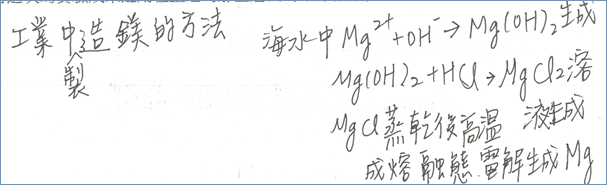 工業中製造鎂的方法
海水中Mg²⁺+OH⁻→Mg(OH)₂生成
Mg(OH)₂+HCl→MgCl₂溶
液生成
MgCl蒸乾後高溫
成熔融態電解生成Mg